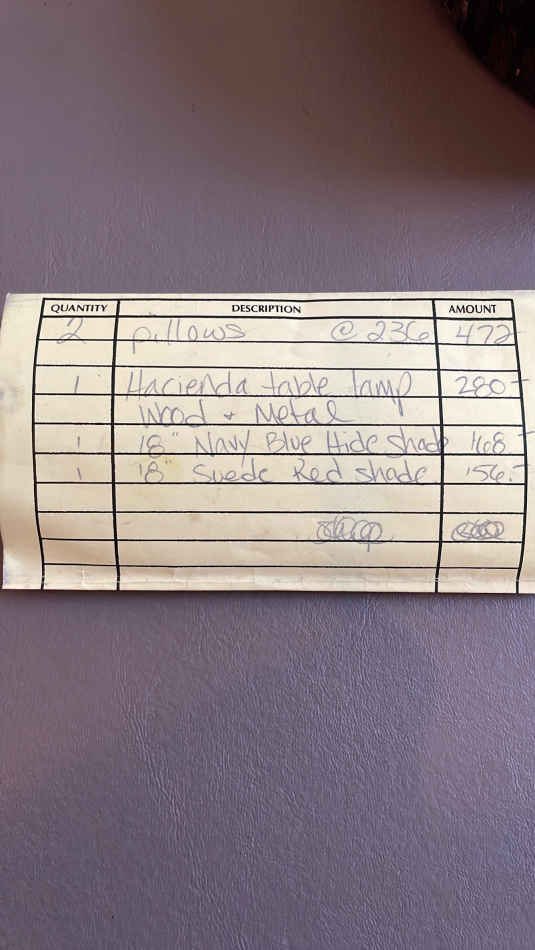 QUANTITY DESCRIPTION AMOUNT
2 pillows @ 236 472-
1 Hacienda table lamp 280-
Wood + Metal
1 18" Navy Blue Hide shade 168-
1 18" Suede Red shade 156.-